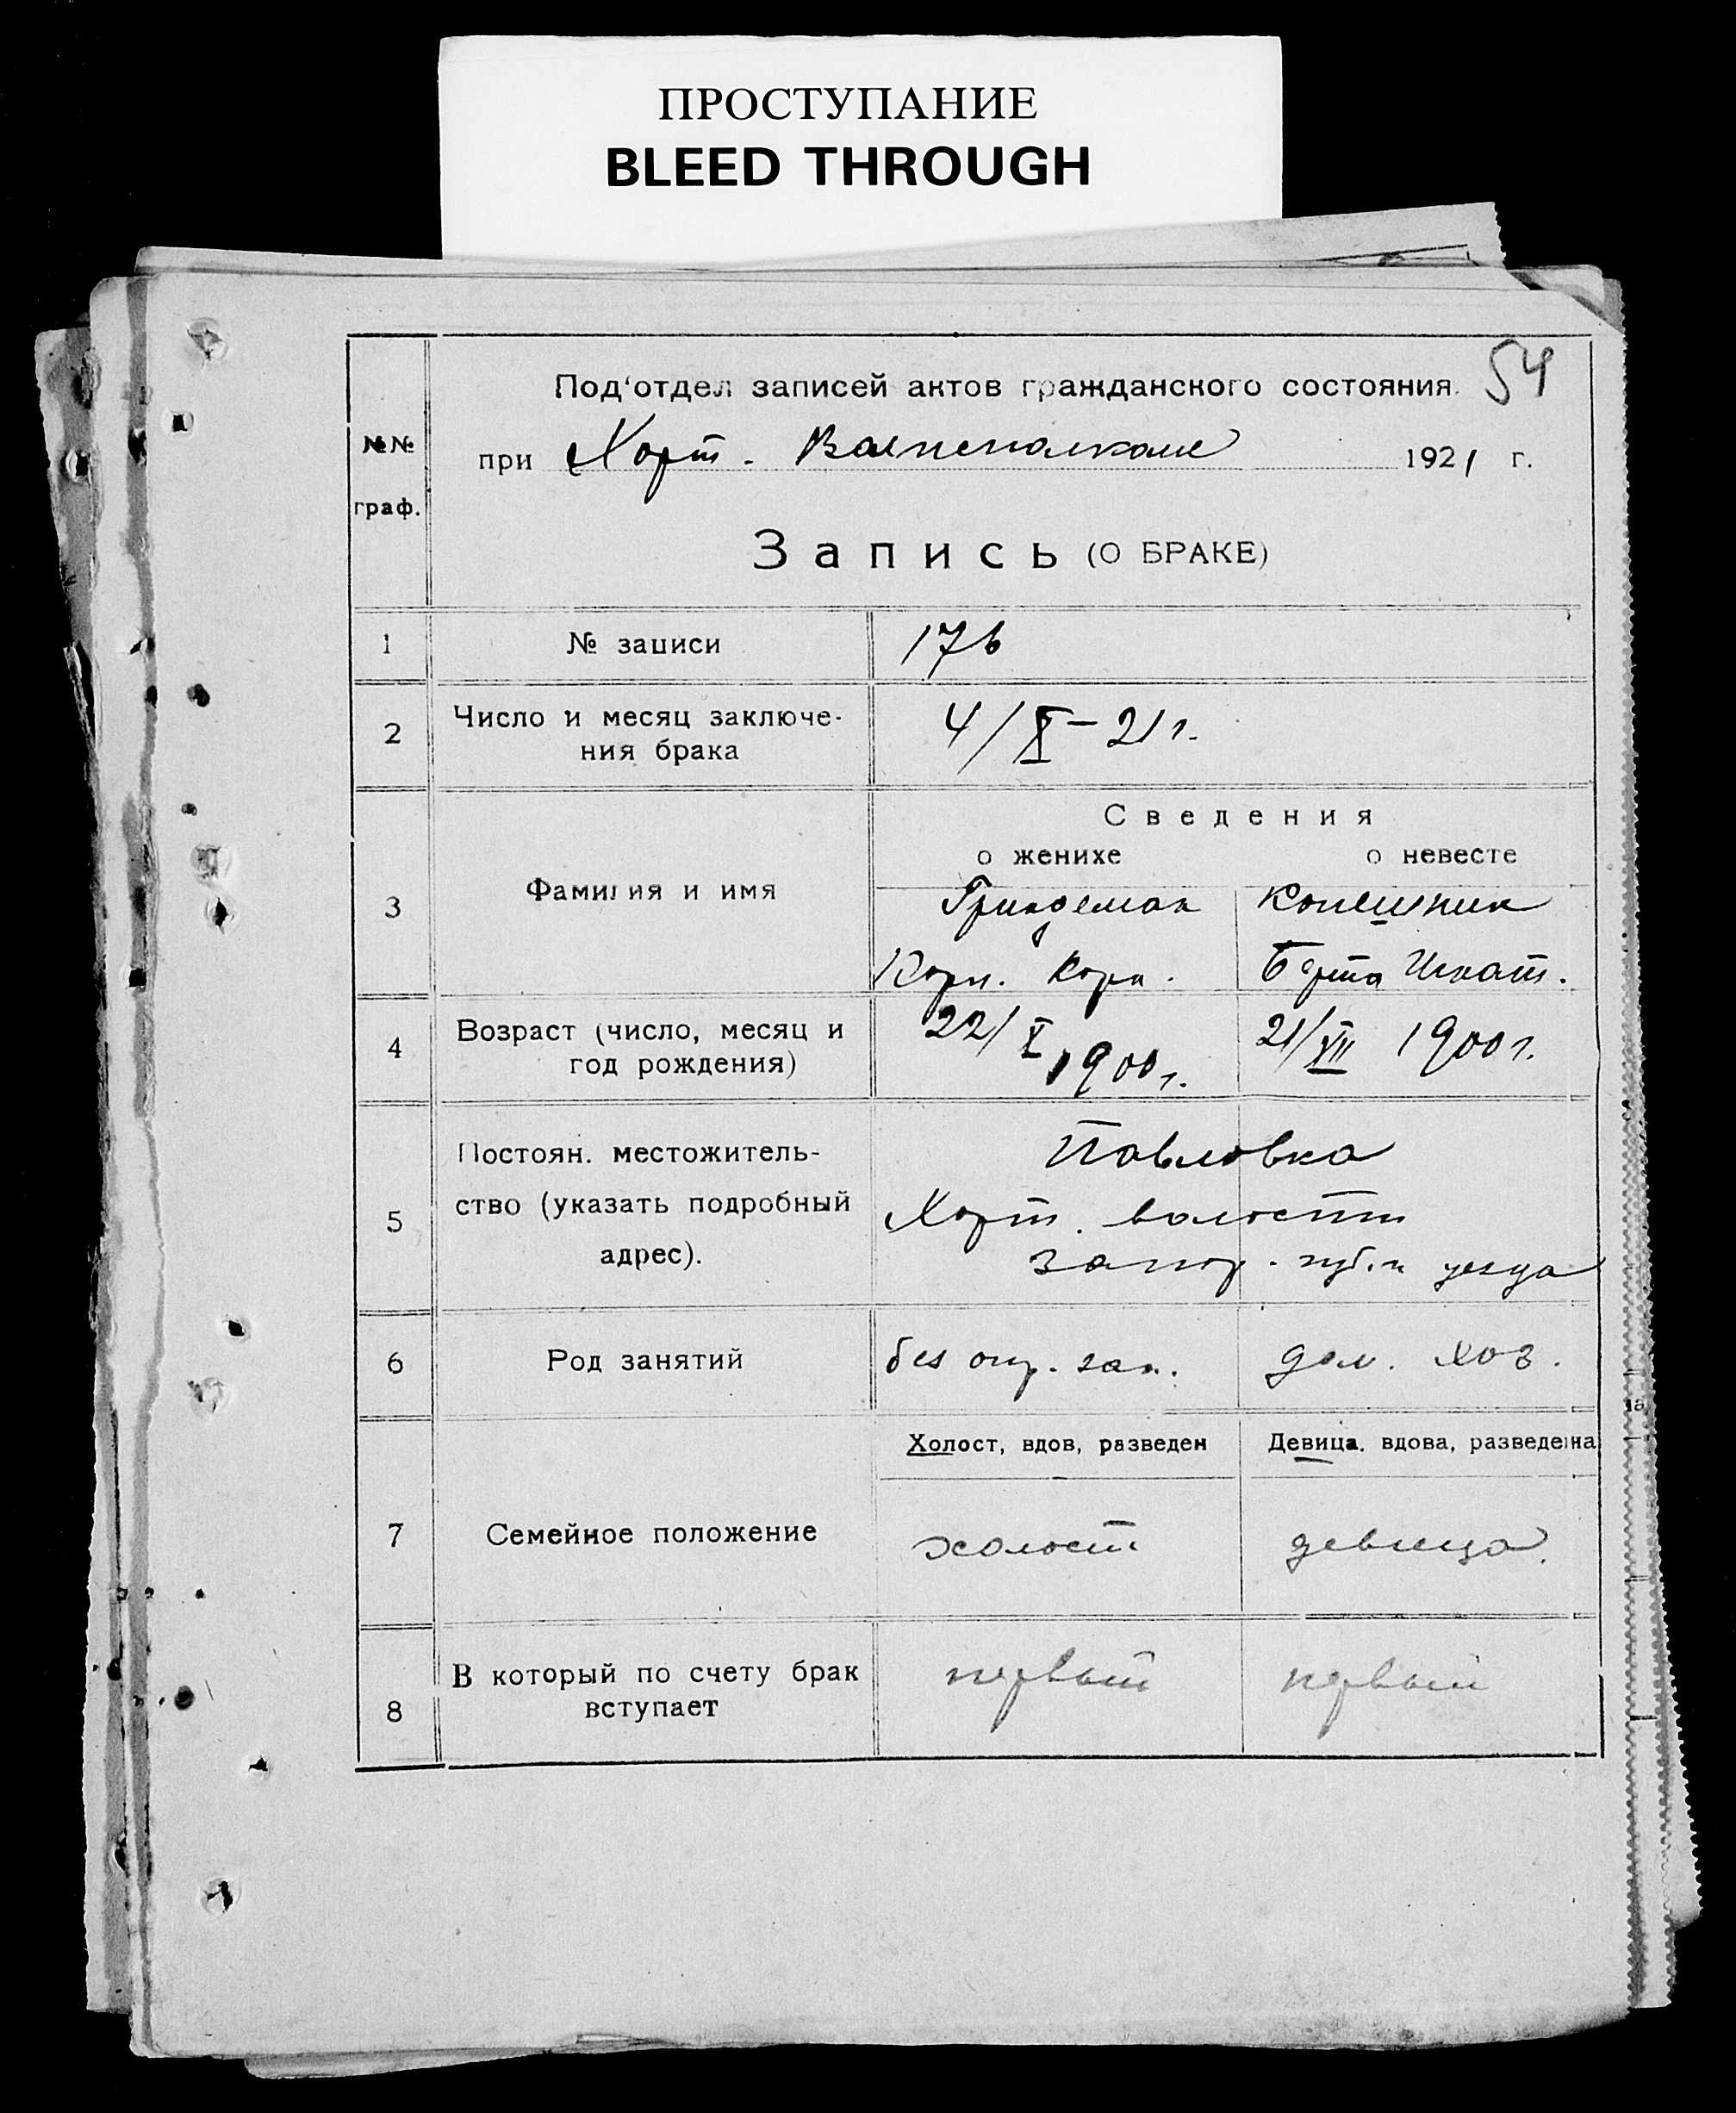 ПРОСТУПАНИЕ
BLEED THROUGH
54
Под'отдел записей актов гражданского состояния.
№№
граф.
при Хорт. Волисполкоме 1921 г.
Запись (О БРАКЕ)
1 № записи 176
2 Число и месяц заключе-
ния брака 4/X-21 г.
Сведения
о женихе о невесте
3 Фамилия и имя Гриндеман Копешник
Корн. Корн. Берта Игнат.
4 Возраст (число, месяц и
год рождения) 22/X 1900 г. 21/VII 1900 г.
5 Постоян. местожитель-
ство (указать подробный
адрес).
Павловка
Хорт. волости
Запор. губ. и уезда
6 Род занятий без опр. зан. дом. хоз.
Холост, вдов, разведен Девица, вдова, разведенна
7 Семейное положение холост девица.
8 В который по счету брак
вступает первый первый